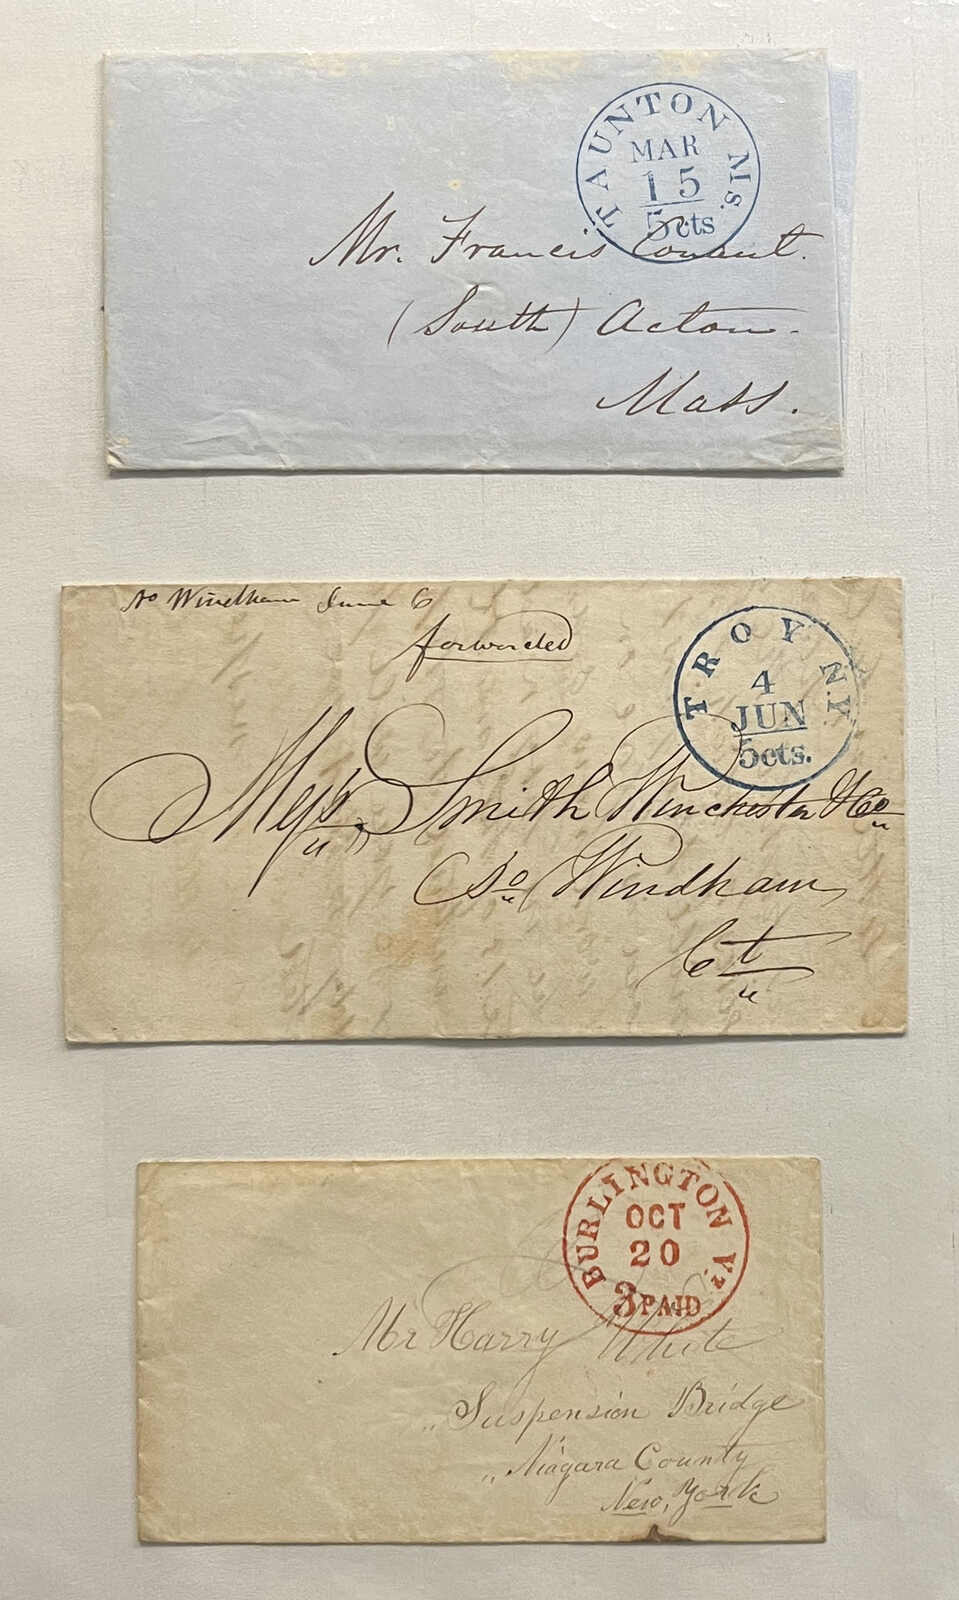 TAUNTON Ms.
MAR
15
5cts
Mr. Francis Conant.
(South) Acton
Mass.
So Windham June 6
forwarded
TROY N.Y.
4
JUN
5cts.
Mess, Smith Winchester & Co
So Windham
Ct
BURLINGTON Vt
OCT
20
3 PAID
Mr Harry White
Suspension Bridge
Niagara County
New, York